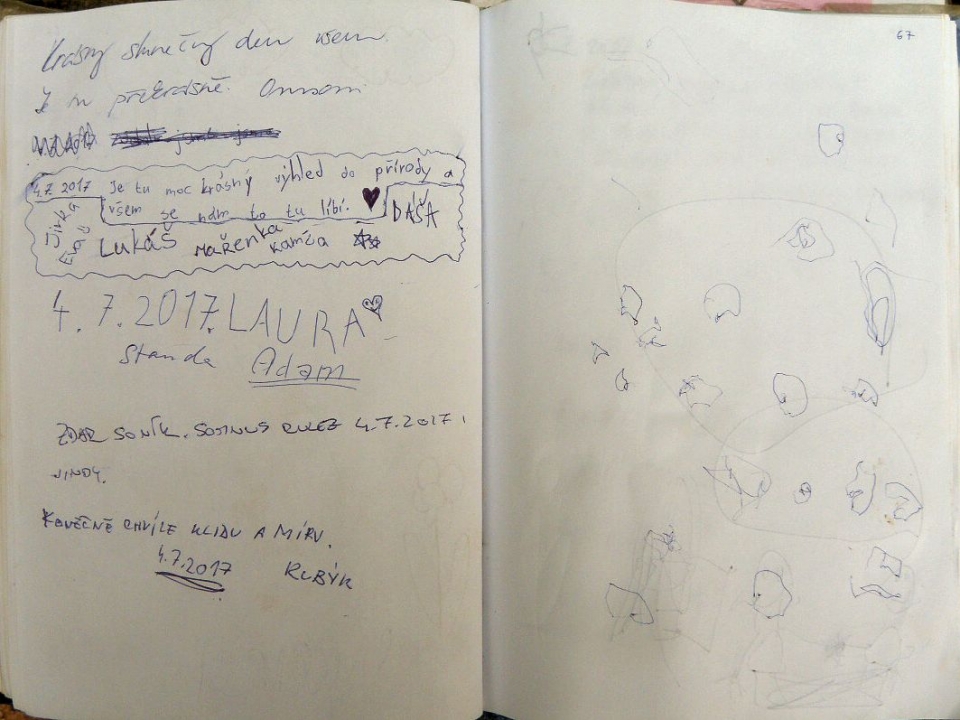 Krásný slunečný den všem.
Je tu překrásně.
4.7. 2017 Je tu moc krásný výhled do přírody a
všem se nám to tu líbí. DÁŠA
Jirka
Lukáš Mařenka Kamča
4.7.2017. LAURA
Standa Adam
ZDAR SONÍK. SOMNUS RULEZ 4.7.2017 I
JINDY.
KONEČNĚ CHVÍLE KLIDU A MÍRU.
4.7.2017 KUBÝK
67